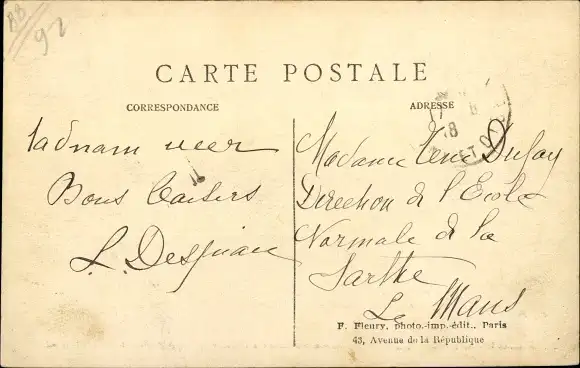 BB
92
CARTE POSTALE
CORRESPONDANCE
ADRESSE
Bons baisers
Madame Dufay
Direction de l'Ecole
Normale de la
Sarthe
Le Mans
F. Fleury, photo.-imp.-édit., Paris
43, Avenue de la République